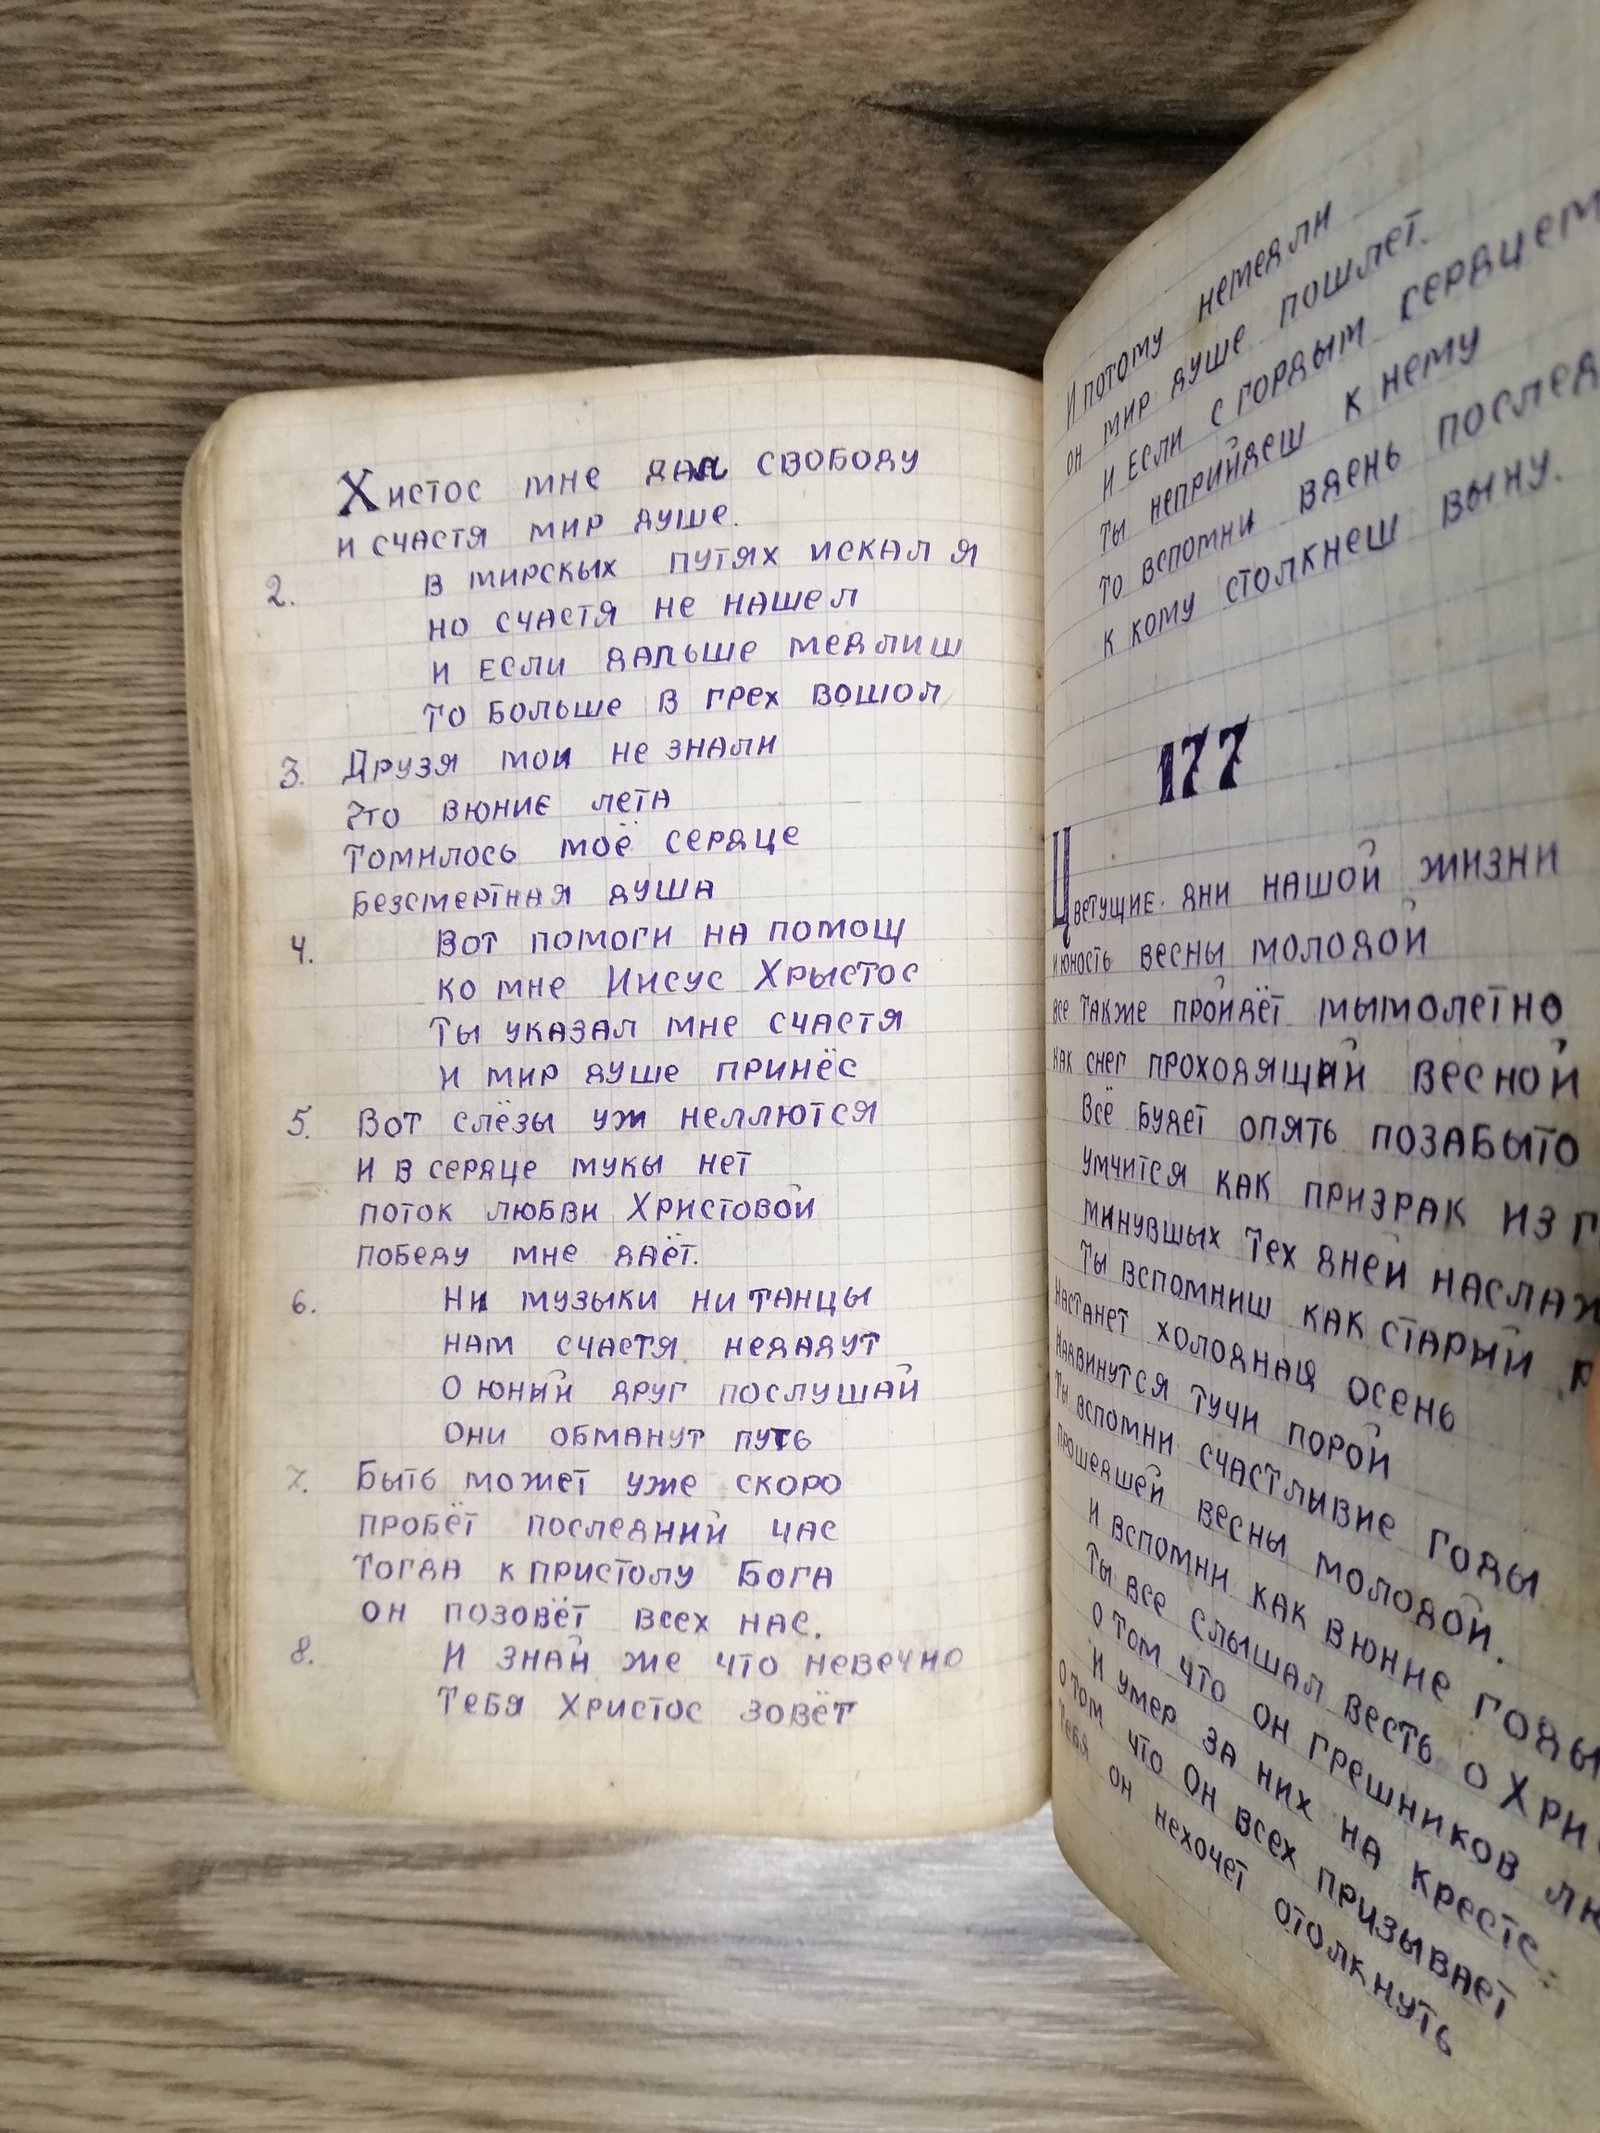 Хистос мне дал свободу
и счастя мир душе.
2. в мирскых путях искал я
но счастя не нашел
и если дальше медлиш
то больше в грех вошол
3. Друзя мои не знали
Что вюние лета
томилось моё сердце
безсмертная душа
4. Вот помоги на помощ
ко мне Иисус Хрыстос
Ты указал мне счастя
и мир душе принёс
5. Вот слёзы уж неллются
и в сердце мукы нет
поток любви Христовой
победу мне даёт.
6. Ни музыки ни танцы
нам счастя недадут
О юний друг послушай
Они обманут путь
7. Быть может уже скоро
пробёт последний час
Тогда к пристолу Бога
он позовёт всех нас.
8. И знай же что невечно
Тебя Христос зовёт
И потому немедли
он мир душе пошлет.
и если с гордым сердцем
ты неприйдеш к нему
то вспомни вдень послед
к кому столкнеш выну.
177
Цветущие дни нашой жизни
июность весны молодой
все также пройдёт мымолетно
как снег проходящий весной
Всё будет опять позабыто
умчится как призрак из г
минувшых тех дней наслаж
ты вспомниш как старий
Настанет холодная осень
надвинутся тучи порой
ты вспомни счастливие годы
прошедшей весны молодой.
и вспомни как вюние годы
ты все слышал весть о Хри
о том что он грешников лю
и умер за них на кресте.
О том что Он всех призывает
тебя он нехочет отолкнуть